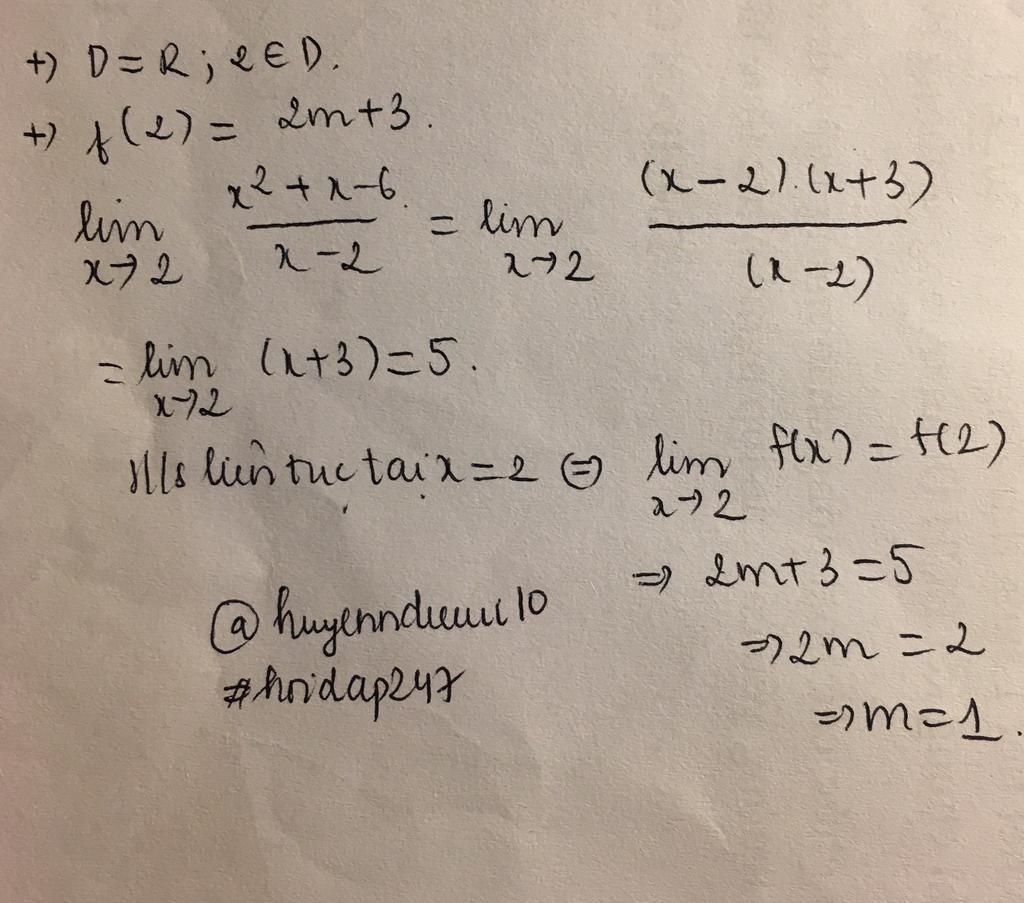 +) D = R ; 2 ∈ D.
+) f(2) = 2m+3.
lim x→2 (x² + x - 6)/(x - 2) = lim x→2 ((x - 2).(x+3))/((x - 2))
= lim x→2 (x+3) = 5.
liên tục tại x = 2 ⇔ lim x→2 f(x) = f(2)
⇒ 2m + 3 = 5
⇒ 2m = 2
⇒ m = 1.
#hoidap247